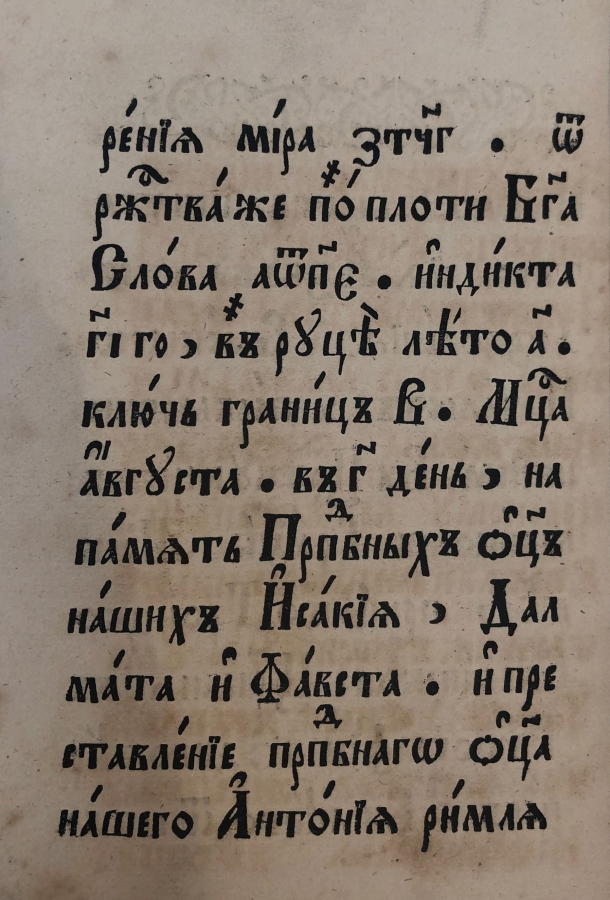 ре́нїѧ мі́ра зтч҃г . ѿ
рж҃тва́ же по́ плоти Бг҃а
Сло́ва аѿп҃є . и҆нди́кта
г҃і го , въ рꙋцѣ̀ лѣ́то а҃ .
клю́чь грани́цъ В . Мц҃а
а҆́вгꙋста . въ г҃ де́нь , на
па́мѧть Прпⷣбныхъ ѻ҆ц҃ъ
на́шихъ И҆са́кїѧ , Дал
ма́та и҆ Фа́вста . и҆ пре
ставле́нїе прпⷣбнагѡ ѻ҆ц҃а
на́шего А҆нто́нїѧ ри́млѧ